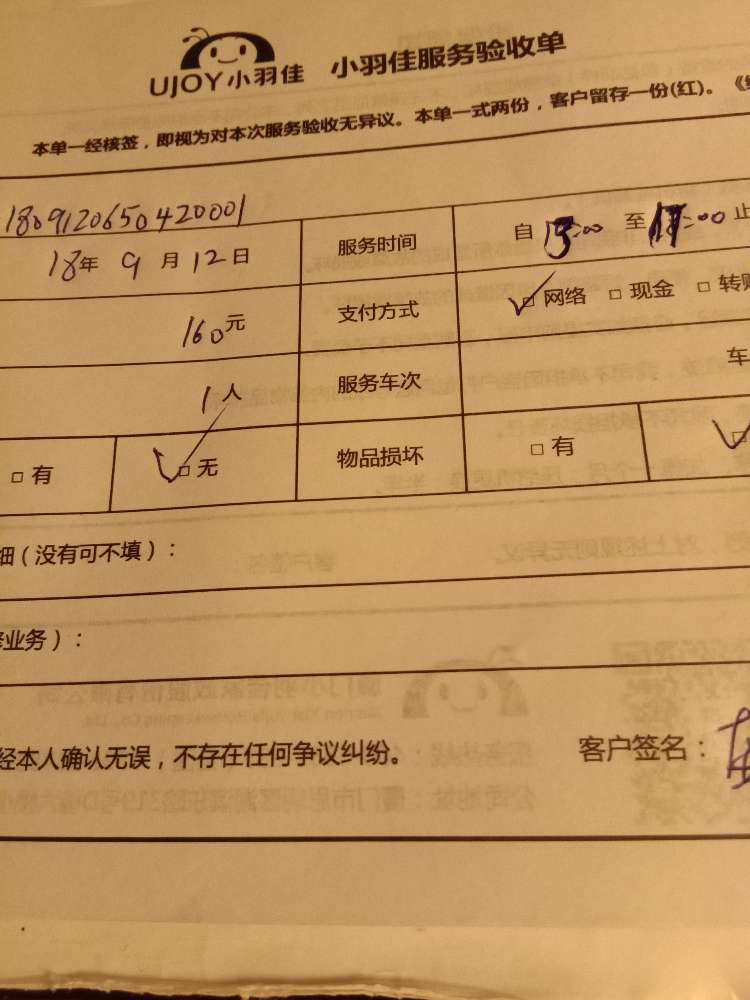 UJOY小羽佳 小羽佳服务验收单
本单一经核签，即视为对本次服务验收无异议。本单一式两份，客户留存一份(红)。
1809120650420001
18年 9月 12日 服务时间 自 :00 至 :00 止
160元 支付方式 ☑网络 □现金 □转账
1人 服务车次 车
□有 ☑无 物品损坏 □有
细（没有可不填）：
业务）：
经本人确认无误，不存在任何争议纠纷。 客户签名：